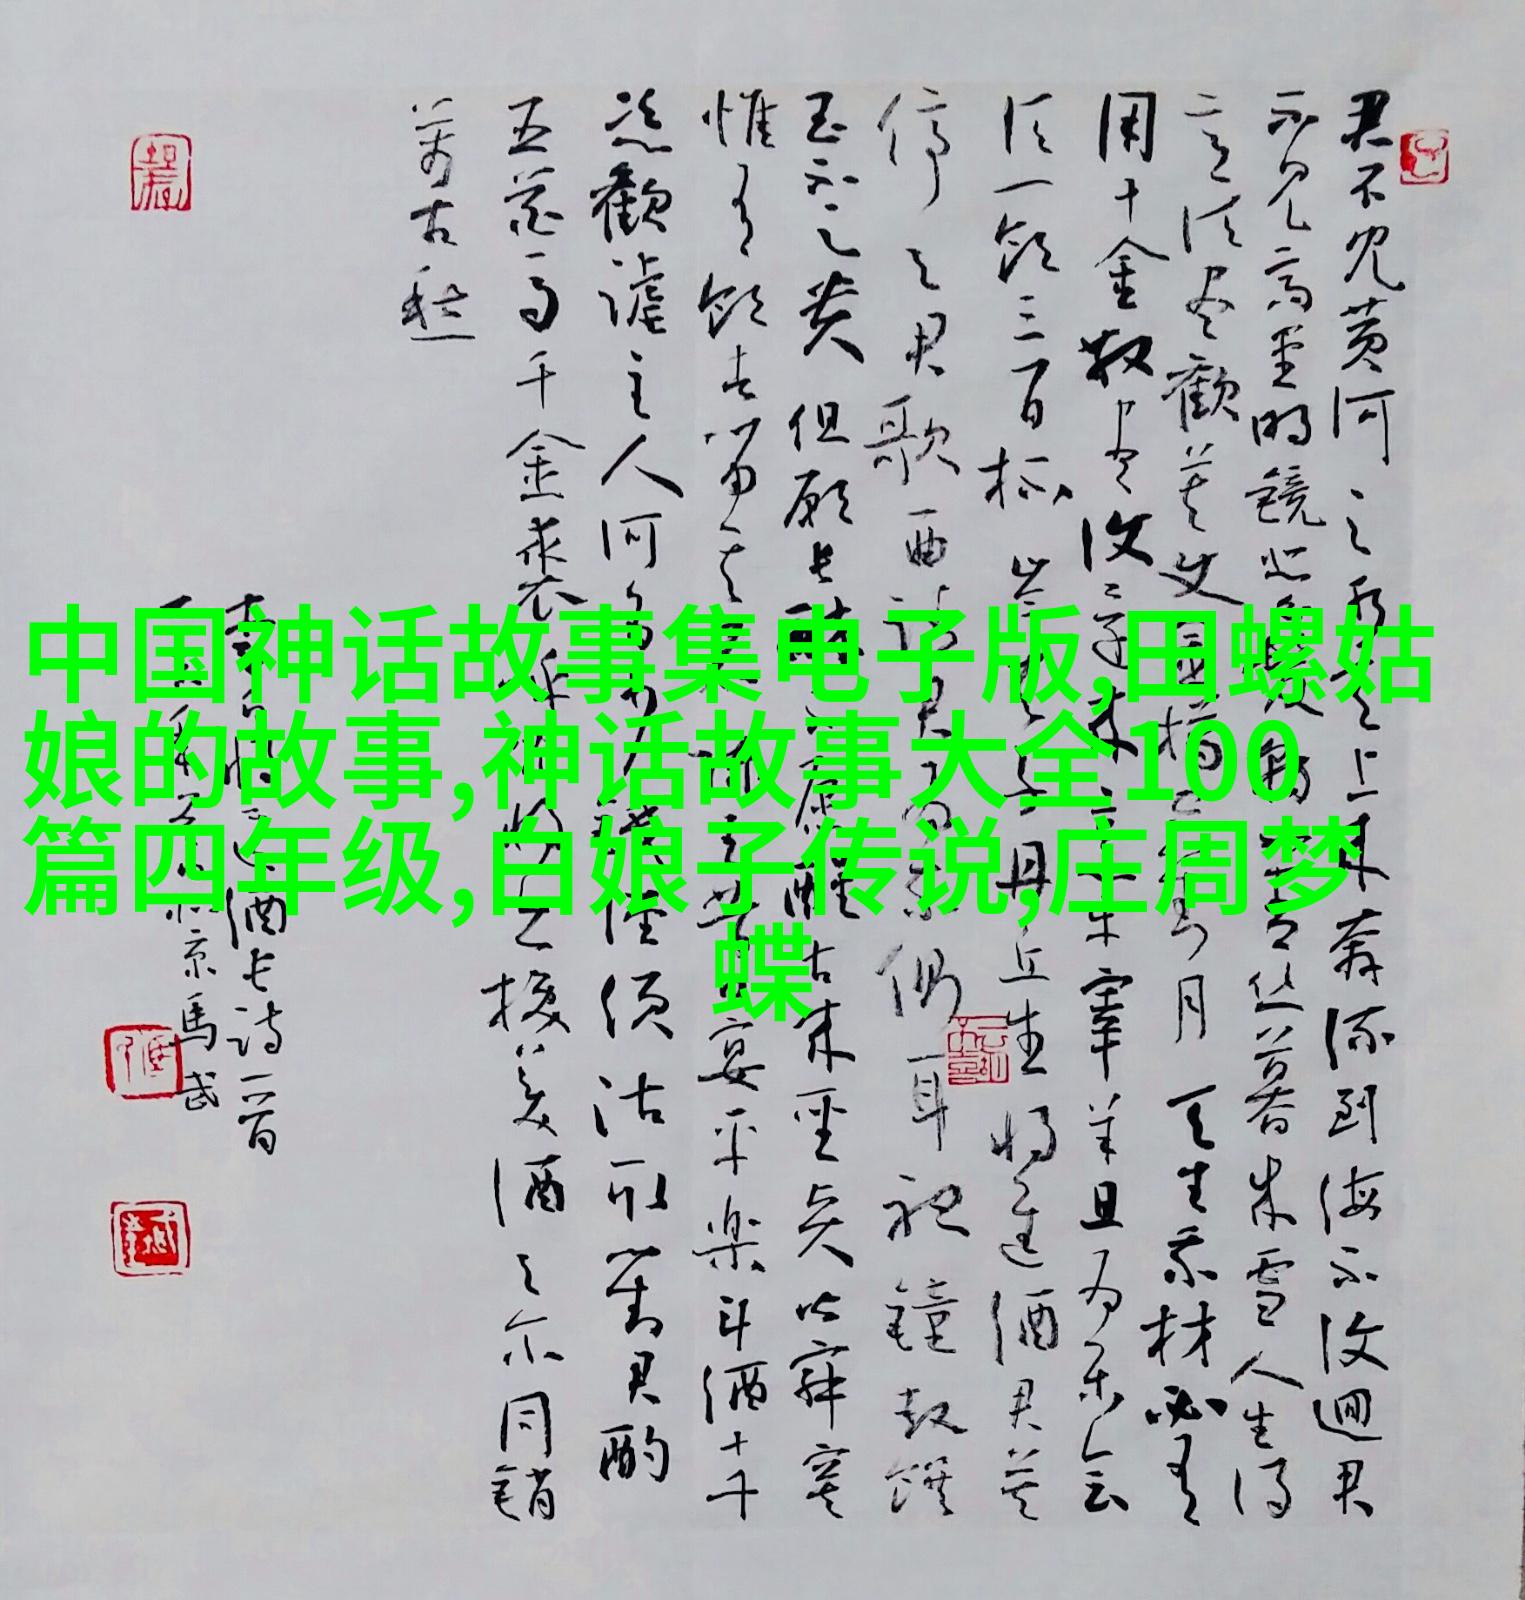 中国神话故事集电子版,田螺姑
娘的故事,神话故事大全100
篇四年级,白娘子传说,庄周梦
蝶
君不见黄河之水天上来奔流到海不復迴君
不见高堂明镜悲白髮朝如青丝暮成雪人生得
意须尽歡莫使金樽空对月天生我材必有
用千金散尽復来烹羊宰羊且为乐会
须一飲三百杯岑夫子丹丘生将進酒君莫
停与君歌一曲请君为我侧耳聽鐘鼓饌
玉不足贵但願长醉不願醒古来聖贤皆寂寞
惟有飲者留其名陈王昔时宴平楽斗酒十千
恣歡謔主人何为言少钱径须沽取對君酌
五花马千金裘呼儿将出换美酒与尔同銷
萬古愁
李白将进酒长诗一首
京馬武